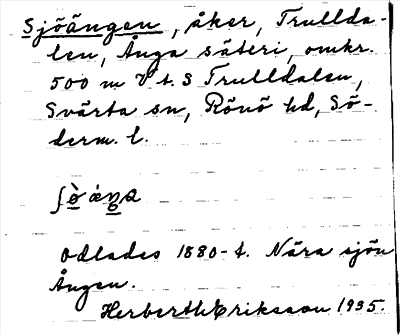 Sjöängen, åker, Trullda-
len, Ånga säteri, omkr.
500 m V t. S Trulldalen,
Svärta sn, Rönö hd, Sö-
derm. l.
Odlades 1880-t. Nära sjön
Ången.
Herberth Eriksson 1935.